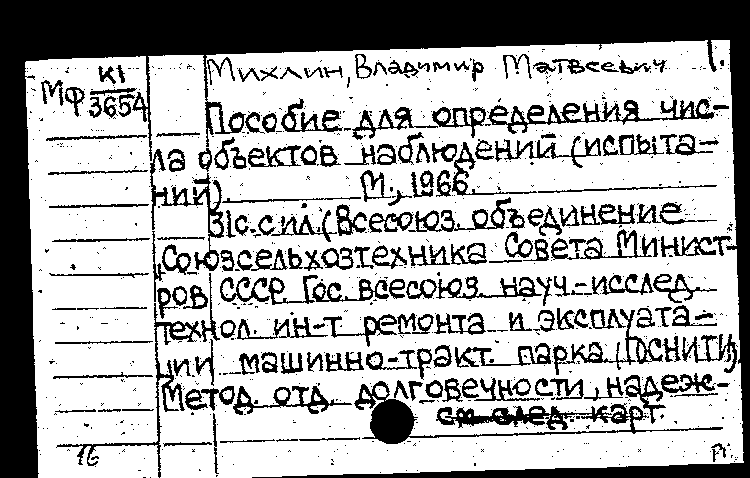 МФ К1/3654
Михлин, Владимир Матвеевич 1.
Пособие для определения чис-
ла объектов наблюдений (испыта-
ний). М., 1966.
31с. с ил. (Всесоюз. объединение
„Союзсельхозтехника Совета Минист-
ров СССР. Гос. всесоюз. науч.-исслед.
технол. ин-т ремонта и эксплуата-
ции машинно-тракт. парка (ГОСНИТИ).
Метод. отд. долговечности, надеж-
см. след. карт.
16